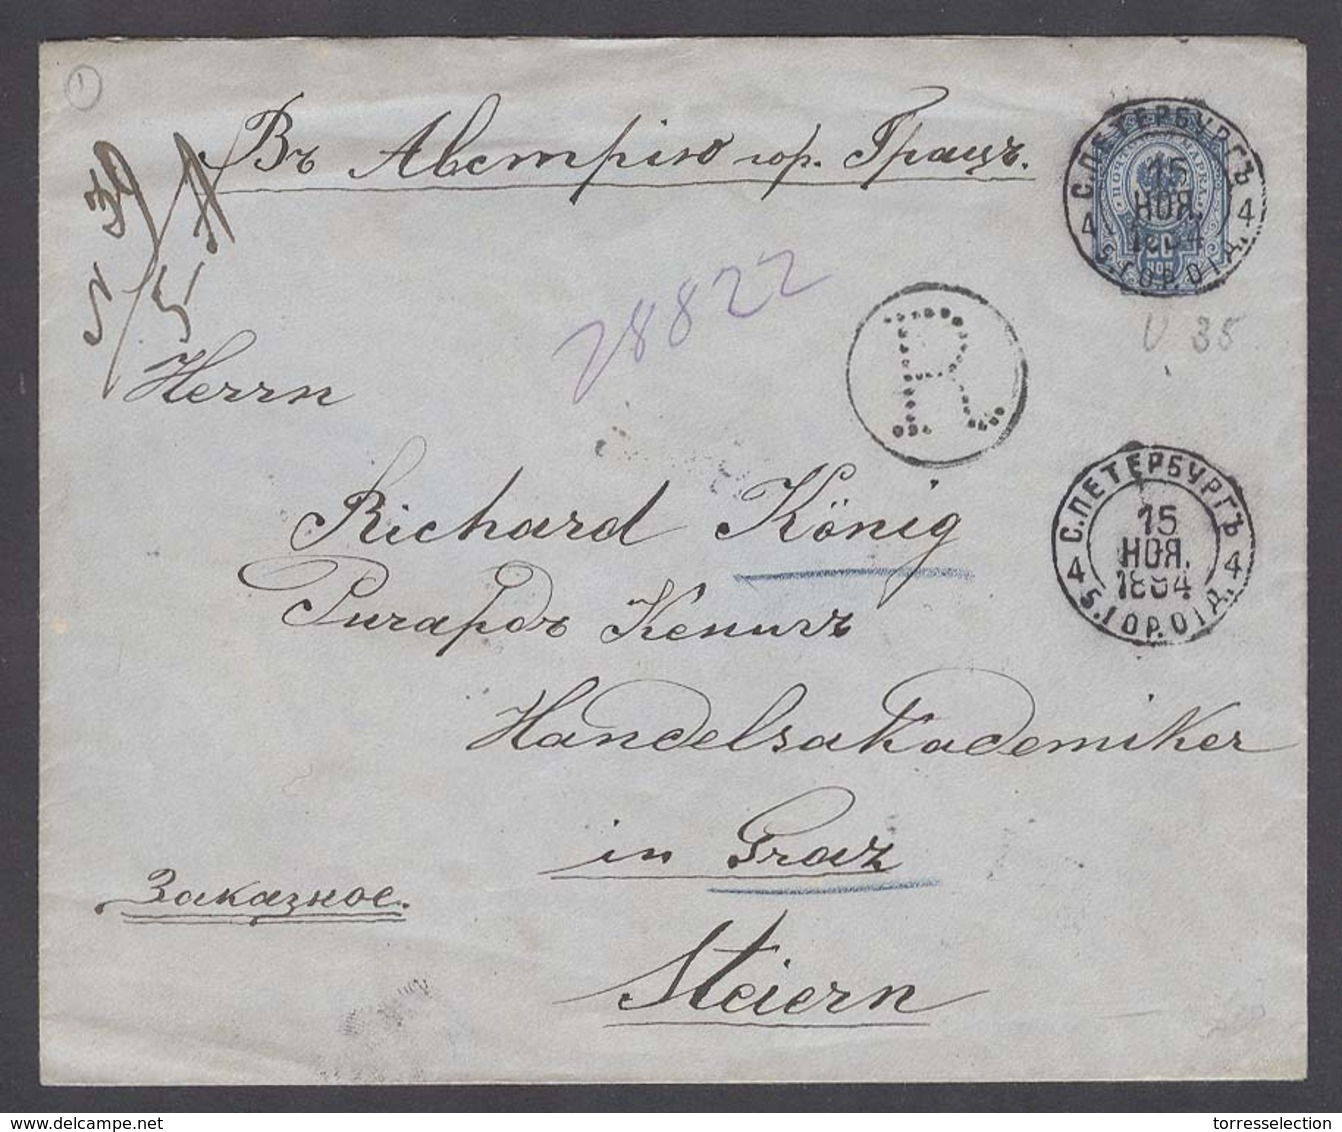 1
Въ Австрію гор. Грацъ.
С.ПЕТЕРБУРГЪ
15
НОЯ.
4 4
5.ГОР.ОТД.
N 39
28822
R
V 35
Herrn
Richard König
С.ПЕТЕРБУРГЪ
15
НОЯ.
1894
4 4
5.ГОР.ОТД.
Ричардъ Кенигъ
Handelsakademiker
in Graz
Заказное.
Steiern
delcampe.net
torresselection